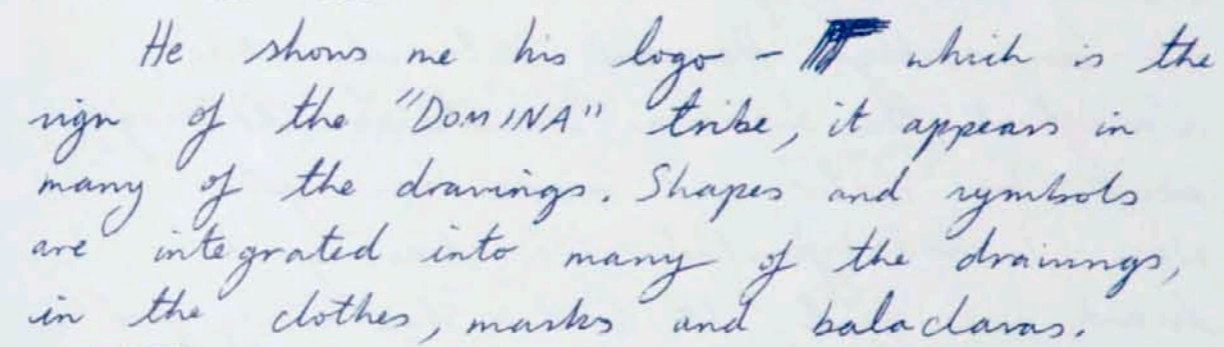 He shows me his logo - which is the
sign of the "DOMINA" tribe, it appears in
many of the drawings. Shapes and symbols
are integrated into many of the drawings,
in the clothes, masks and balaclavas.